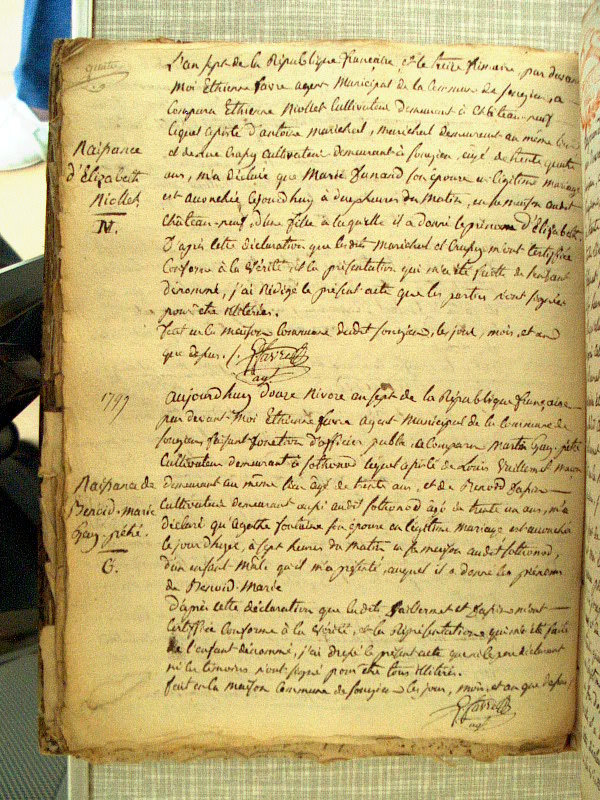 L'an sept de la République française, et le treize frimaire, par devant
Moi Ethienne favre agent Municipal de la Commune de songieu, a
Comparu Ethienne Niollet Cultivateur demeurant à Château-neuf
Lequel apisté d'antoine Marichal, Maréchal demeurant au même lieu
et de Crapuy Cultivateur demeurant à songieu, âgé de trente quatre
ans, m'a déclaré que Marie funand son épouse en légitime mariage
est accouchée Cejourd'huy à deux heures du Matin, en sa maison audit
Château-neuf, d'une fille à laquelle il a donné le prénom d'Elizabeth
D'après cette déclaration que lesdits Marichal et Crapuy m'ont Certifiée
Conforme à la Vérité, et la présentation qui m'a été faite de l'enfant
dénommé, j'ai Rédigé le présent acte que les parties n'ont signées
pour être illitérées.
fait en la maison Commune dudit songieu, le jour, mois, et an
que depus. /. E favre
agt
Naissance
d'Elizabeth
Niollet
N.
1799
aujourd'huy douze Nivose an sept de la République française
par devant Moi Ethienne favre agent Municipal de la Commune de
songieu faisant fonction d'officier public, a Comparu Martin Gay-pété
Cultivateur demeurant à sothonod lequel apisté de Louis Maçon
demeurant au même lieu âgé de trente ans, et de Benoid
Cultivateur demeurant aussi audit sothonod âgé de trente un ans, m'a
déclaré qu'agathe fontaine son épouse en légitime Mariage est accouchée
Cejourd'huy, à sept heures du Matin en sa maison audit sothonod,
d'un enfant Mâle qu'il m'a présenté, auquel il a donné les prénoms
de Benoid-Marie
d'après cette déclaration que lesdits et m'ont
Certifiée Conforme à la Vérité, et la Représentation qui m'a été faite
de l'enfant dénommé, j'ai dressé le présent acte que ni le déclarant
ni les témoins n'ont signé pour être tous illitérés.
fait en la maison Commune de songieu les jour, mois, et an que depus /
E favre
agt
Naissance de
Benoid-Marie
Gay-pété.
G.